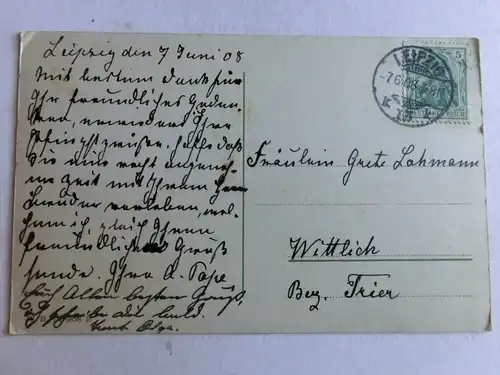 Leipzig den 7 Juni 08
Mit bestem Dank für
Ihr freundliches Geden-
ken, erwiedere Ihre
Pfingstgrüße, hoffe daß
Sie eine recht angeneh-
me Zeit mit Ihrem Herrn
verleben, wel-
chem ich, gleich Ihnen
freundlichen Gruß
sende. Ihre A. Pape
Euch Allen besten Gruß,
ich schreibe Dir bald.
LEIPZIG
-7.6.08.
5
Fräulein Grete Lohmann
Wittlich
Bez. Trier